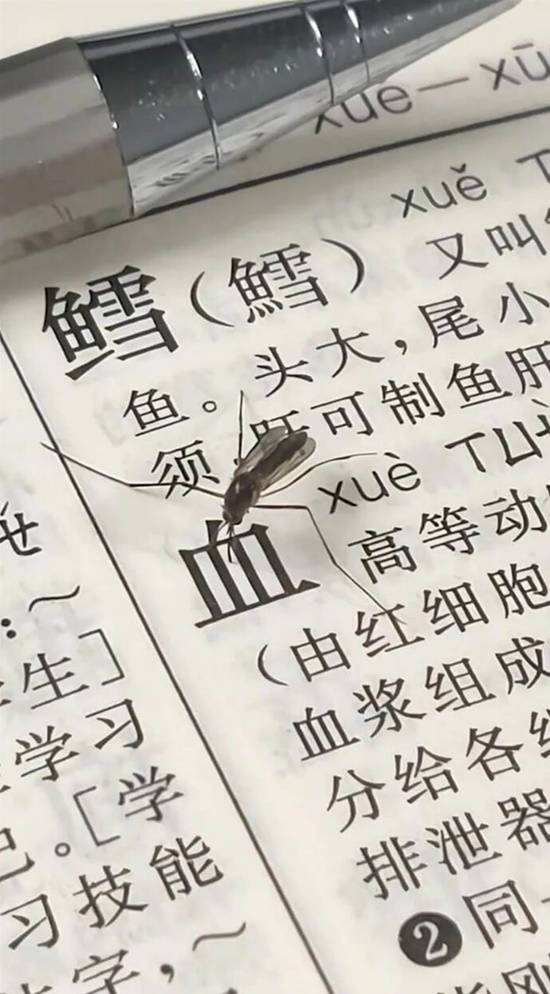 xue—xū
xuě ㄒ
鳕（鱈） 又叫
鱼。头大，尾小
须 肝可制鱼肝
xuè ㄒㄩ
血 高等动
（由红细胞
血浆组成
分给各
排泄器
❷ 同
ㄝ
：～
生］
学习
。［学
习技能
字，～